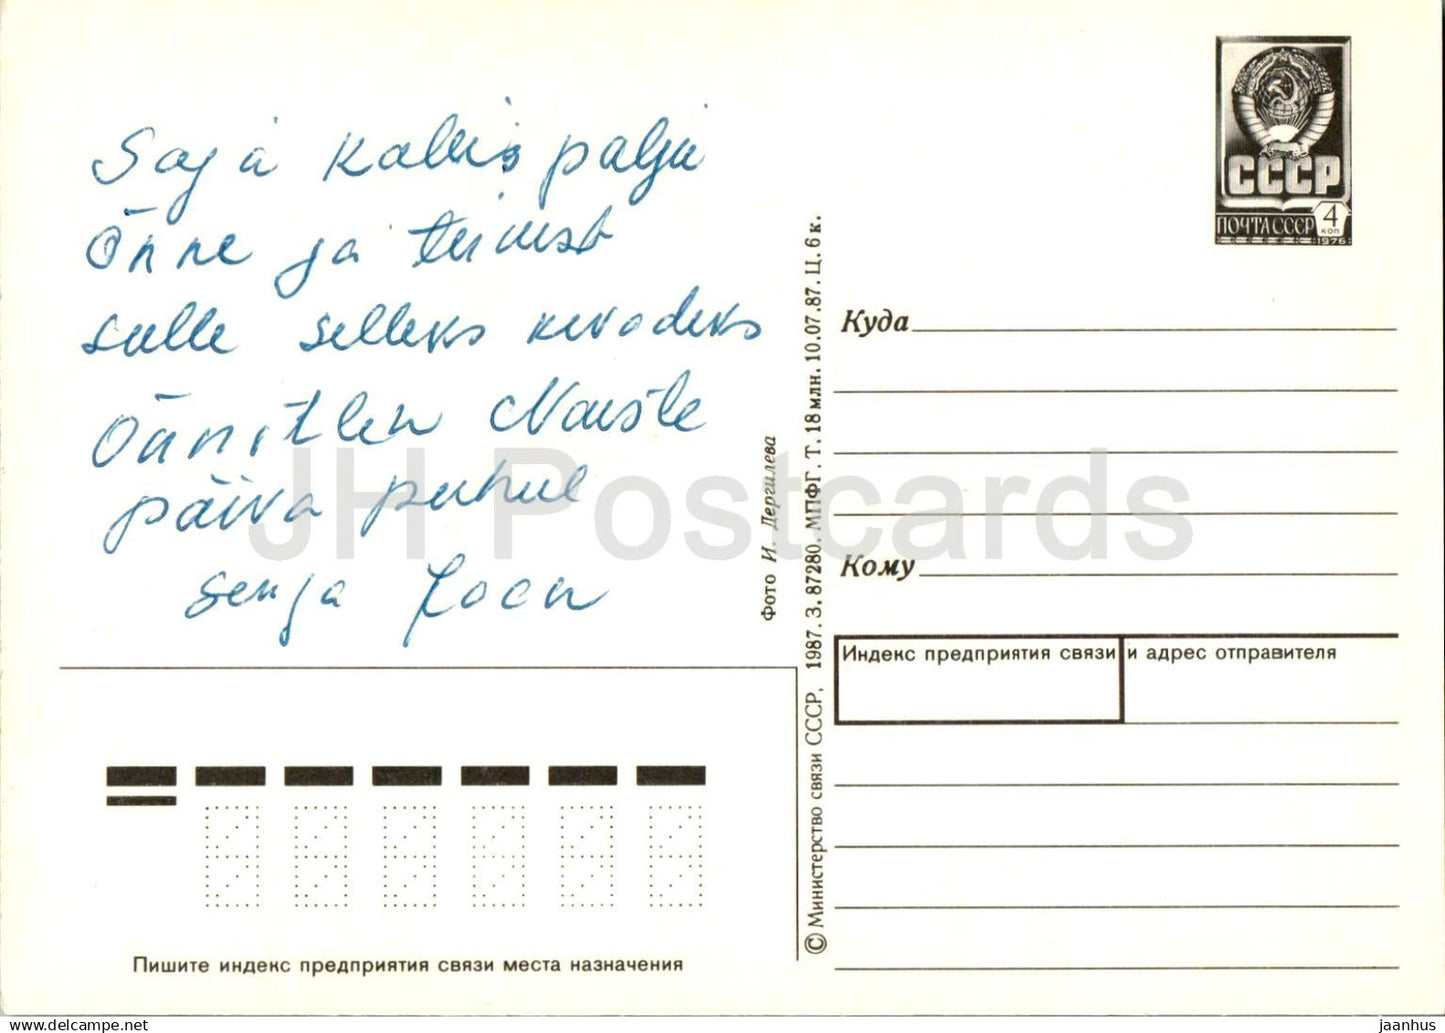 Saja kallis palju
Õnne ja tervist
sulle selleks kevadeks
Õnnitlen Naiste
päiva puhul
Senja
СССР
ПОЧТА СССР 4 КОП
1976
Куда
Кому
Индекс предприятия связи и адрес отправителя
Фото И. Дергилева
© Министерство связи СССР, 1987. З. 87280. МПФГ. Т. 18 млн. 10.07.87. Ц. 6 к.
Пишите индекс предприятия связи места назначения
JH Postcards
jaanhus - www.delcampe.net